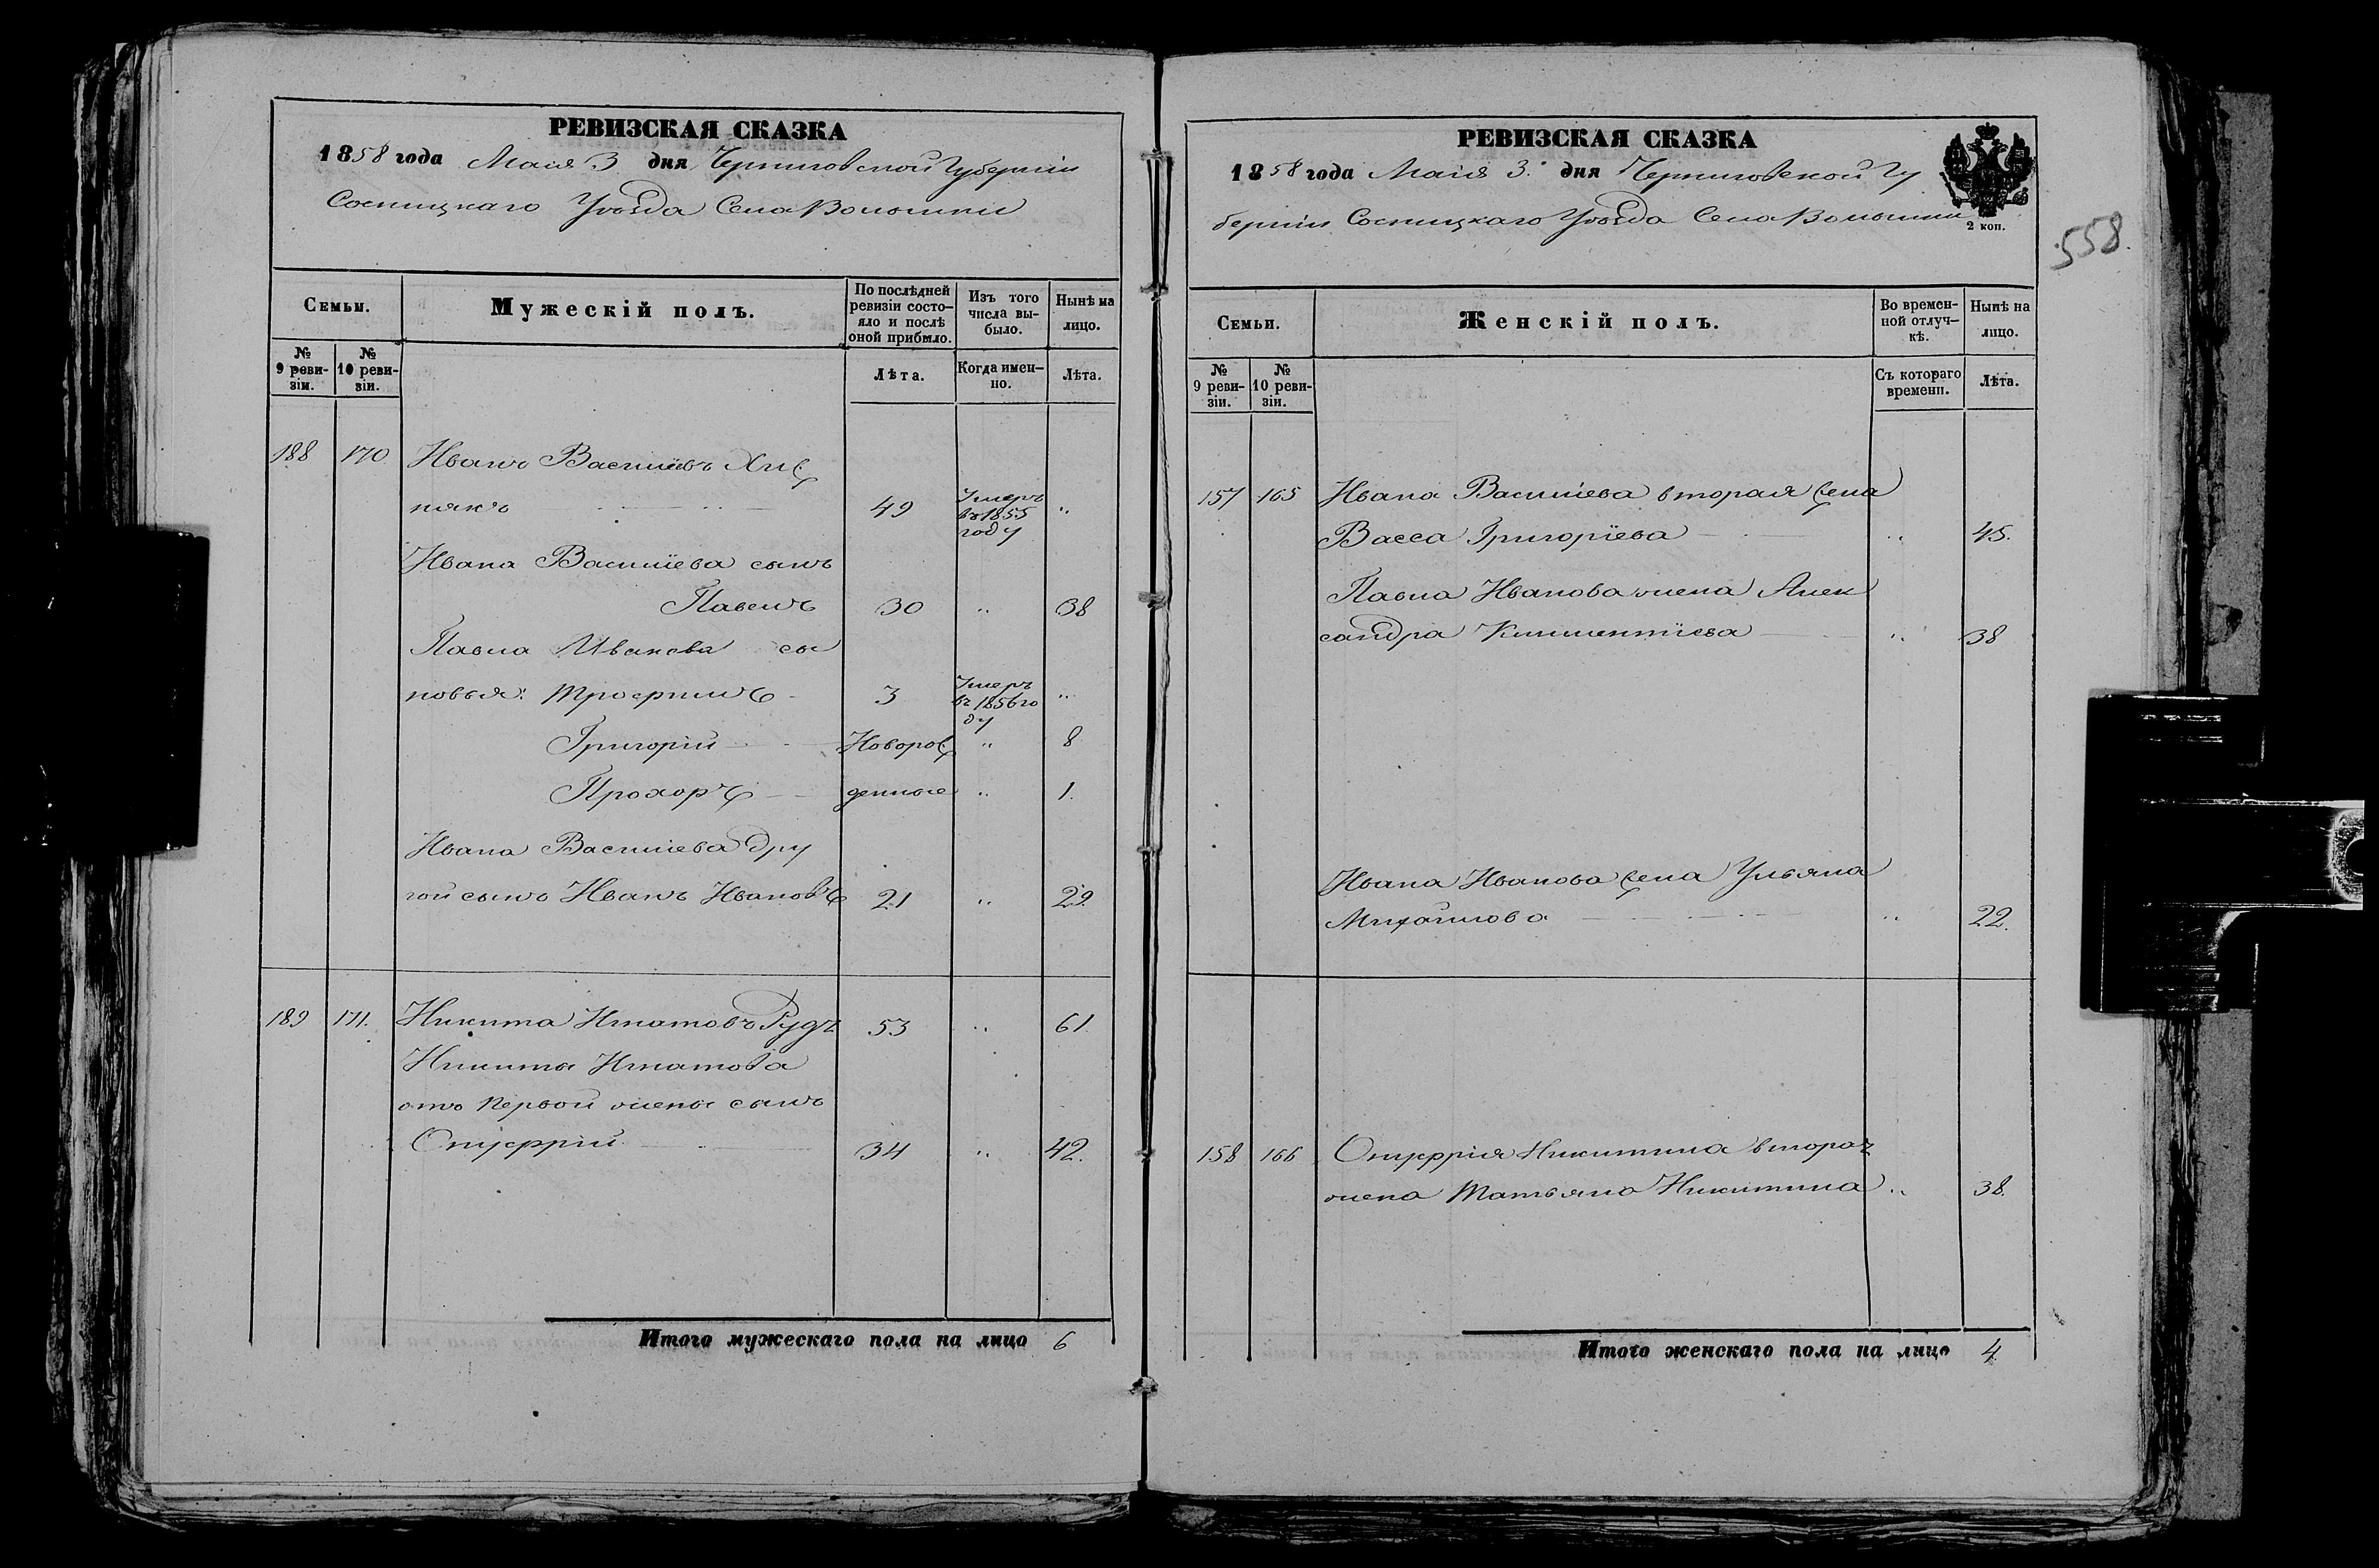 РЕВИЗСКАЯ СКАЗКА
1858 года Маія 3 дня Черниговской Губерніи
Сосницкаго Уѣзда Села Волынки
Семьи.
Мужескій полъ.
По послѣдней ревизіи состояло и послѣ оной прибыло.
Изъ того числа выбыло.
Нынѣ на лицо.
№ 9 ревизіи.
№ 10 ревизіи.
Лѣта.
Когда именно.
Лѣта.
188 170 Иванъ Василіевъ
някъ 49 Умеръ въ 1855 году "
Ивана Василіева сынъ
Павелъ 30 " 38
Павла Иванова сы
новья: Трофимъ 3 Умеръ въ 1856 году "
Григорій Новорож " 8
Прохоръ денные " 1.
Ивана Василіева дру
гой сынъ Иванъ Ивановъ 21 " 29.
189 171. Никита Игнатовъ Рудъ 53 " 61.
Никиты Игнатова
отъ первой жены сынъ
Онуфрій 34 " 42.
Итого мужескаго пола на лицо 6
РЕВИЗСКАЯ СКАЗКА
1858 года Маія 3. дня Черниговской Гу
берніи Сосницкаго Уѣзда Села Волынки
2 коп.
558.
Семьи.
Женскій полъ.
Во временной отлучкѣ.
Нынѣ на лицо.
№ 9 ревизіи.
№ 10 ревизіи.
Съ котораго времени.
Лѣта.
157 165 Ивана Василіева вторая жена
Васса Григоріева " 45.
Павла Иванова жена Алек
сандра Климентіева " 38
Ивана Иванова жена Ульяна
Михайлова " 22.
158 166 Онуфрія Никитина втора
жена Татьяна Никитина " 38.
Итого женскаго пола на лицо 4